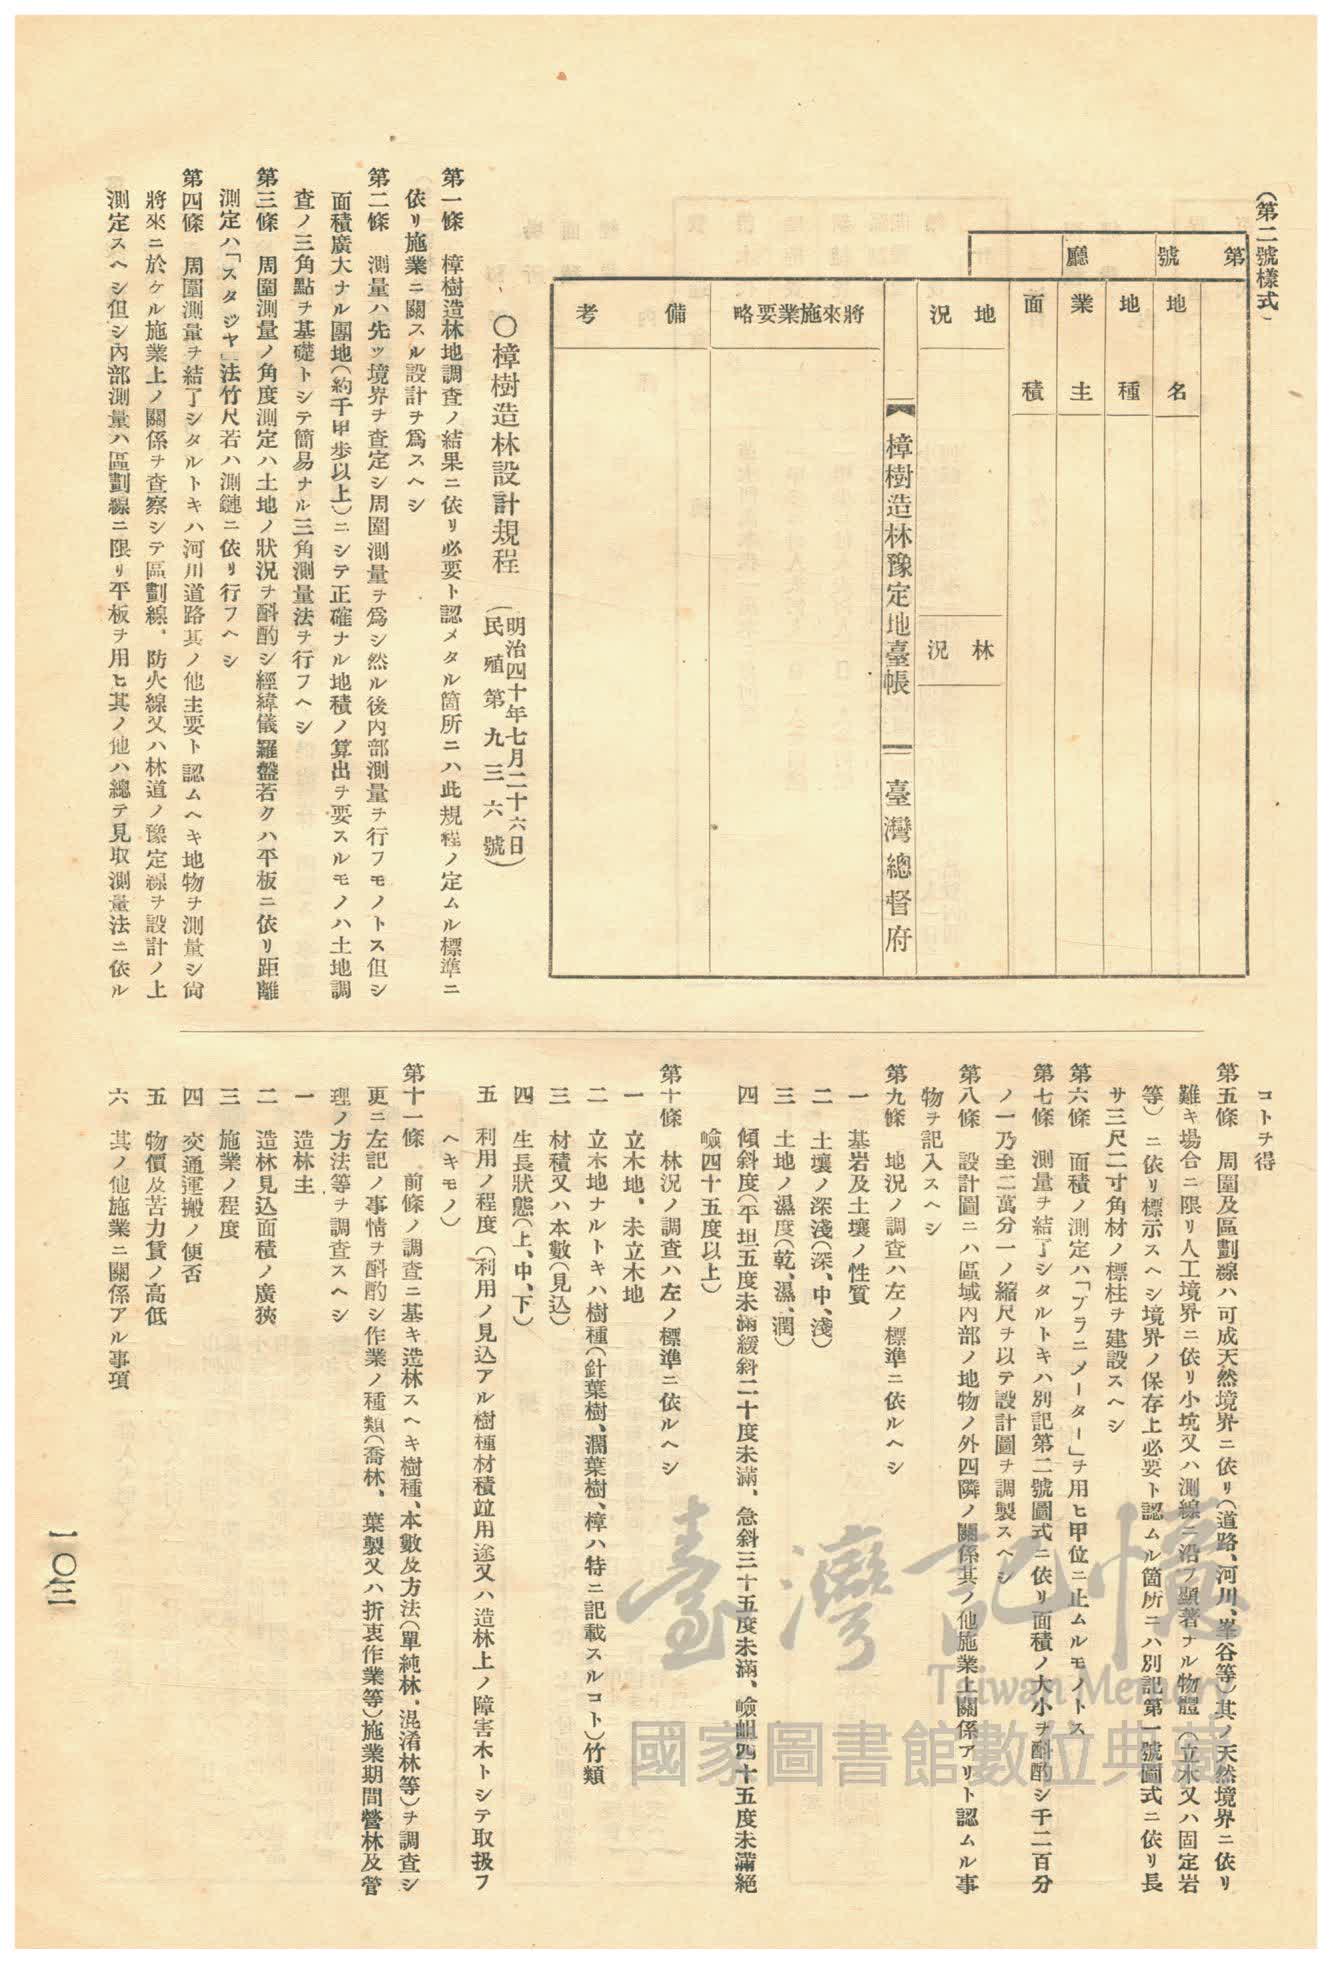 (第二號樣式)
第 號 廳
地名
地種
業主
面積
地況
林況
樟樹造林豫定地臺帳
臺灣總督府
將來施業要略
備考
〇樟樹造林設計規程
(明治四十年七月二十六日
民殖第九三六號)
第一條 樟樹造林地調査ノ結果ニ依リ必要ト認メタル箇所ニハ此規程ノ定ムル標準ニ
依リ施業ニ關スル設計ヲ爲スヘシ
第二條 測量ハ先ッ境界ヲ査定シ周圍測量ヲ爲シ然ル後内部測量ヲ行フモノトス但シ
面積廣大ナル團地(約千甲歩以上)ニシテ正確ナル地積ノ算出ヲ要スルモノハ土地調
査ノ三角點ヲ基礎トシテ簡易ナル三角測量法ヲ行フヘシ
第三條 周圍測量ノ角度測定ハ土地ノ狀況ヲ斟酌シ經緯儀羅盤若クハ平板ニ依リ距離
測定ハ「スタジヤ」法竹尺若ハ測鏈ニ依リ行フヘシ
第四條 周圍測量ヲ結了シタルトキハ河川道路其ノ他主要ト認ムヘキ地物ヲ測量シ尙
將來ニ於ケル施業上ノ關係ヲ査察シテ區劃線、防火線又ハ林道ノ豫定線ヲ設計ノ上
測定スヘシ但シ内部測量ハ區劃線ニ限リ平板ヲ用ヒ其ノ他ハ總テ見取測量法ニ依ル
コトヲ得
第五條 周圍及區劃線ハ可成天然境界ニ依リ(道路、河川、峯谷等)其ノ天然境界ニ依リ
難キ場合ニ限リ人工境界ニ依リ小坑又ハ測線ニ沿フ顯著ナル物體(立木又ハ固定岩
等)ニ依リ標示スヘシ境界ノ保存上必要ト認ムル箇所ニハ別記第一號圖式ニ依リ長
サ三尺二寸角材ノ標柱ヲ建設スヘシ
第六條 面積ノ測定ハ「プラニメーター」ヲ用ヒ甲位ニ止ムルモノトス
第七條 測量ヲ結了シタルトキハ別記第二號圖式ニ依リ面積ノ大小ヲ斟酌シ千二百分
ノ一乃至二萬分一ノ縮尺ヲ以テ設計圖ヲ調製スヘシ
第八條 設計圖ニハ區域内部ノ地物ノ外四隣ノ關係其ノ他施業上關係アリト認ムル事
物ヲ記入スヘシ
第九條 地況ノ調査ハ左ノ標準ニ依ルヘシ
一 基岩及土壤ノ性質
二 土壤ノ深淺(深、中、淺)
三 土地ノ濕度(乾、濕、潤)
四 傾斜度(平坦五度未滿緩斜二十度未滿、急斜三十五度未滿、嶮岨四十五度未滿絕
嶮四十五度以上)
第十條 林況ノ調査ハ左ノ標準ニ依ルヘシ
一 立木地、未立木地
二 立木地ナルトキハ樹種(針葉樹、濶葉樹、樟ハ特ニ記載スルコト)竹類
三 材積又ハ本數(見込)
四 生長狀態(上、中、下)
五 利用ノ程度(利用ノ見込アル樹種材積竝用途又ハ造林上ノ障害木トシテ取扱フ
ヘキモノ)
第十一條 前條ノ調査ニ基キ造林スヘキ樹種、本數及方法(單純林、混淆林等)ヲ調査シ
更ニ左記ノ事情ヲ斟酌シ作業ノ種類(喬林、葉製又ハ折衷作業等)施業期間營林及管
理ノ方法等ヲ調査スヘシ
一 造林主
二 造林見込面積ノ廣狹
三 施業ノ程度
四 交通運搬ノ便否
五 物價及苦力賃ノ高低
六 其ノ他施業ニ關係アル事項
一〇三
臺灣記憶
Taiwan Memory
國家圖書館數位典藏